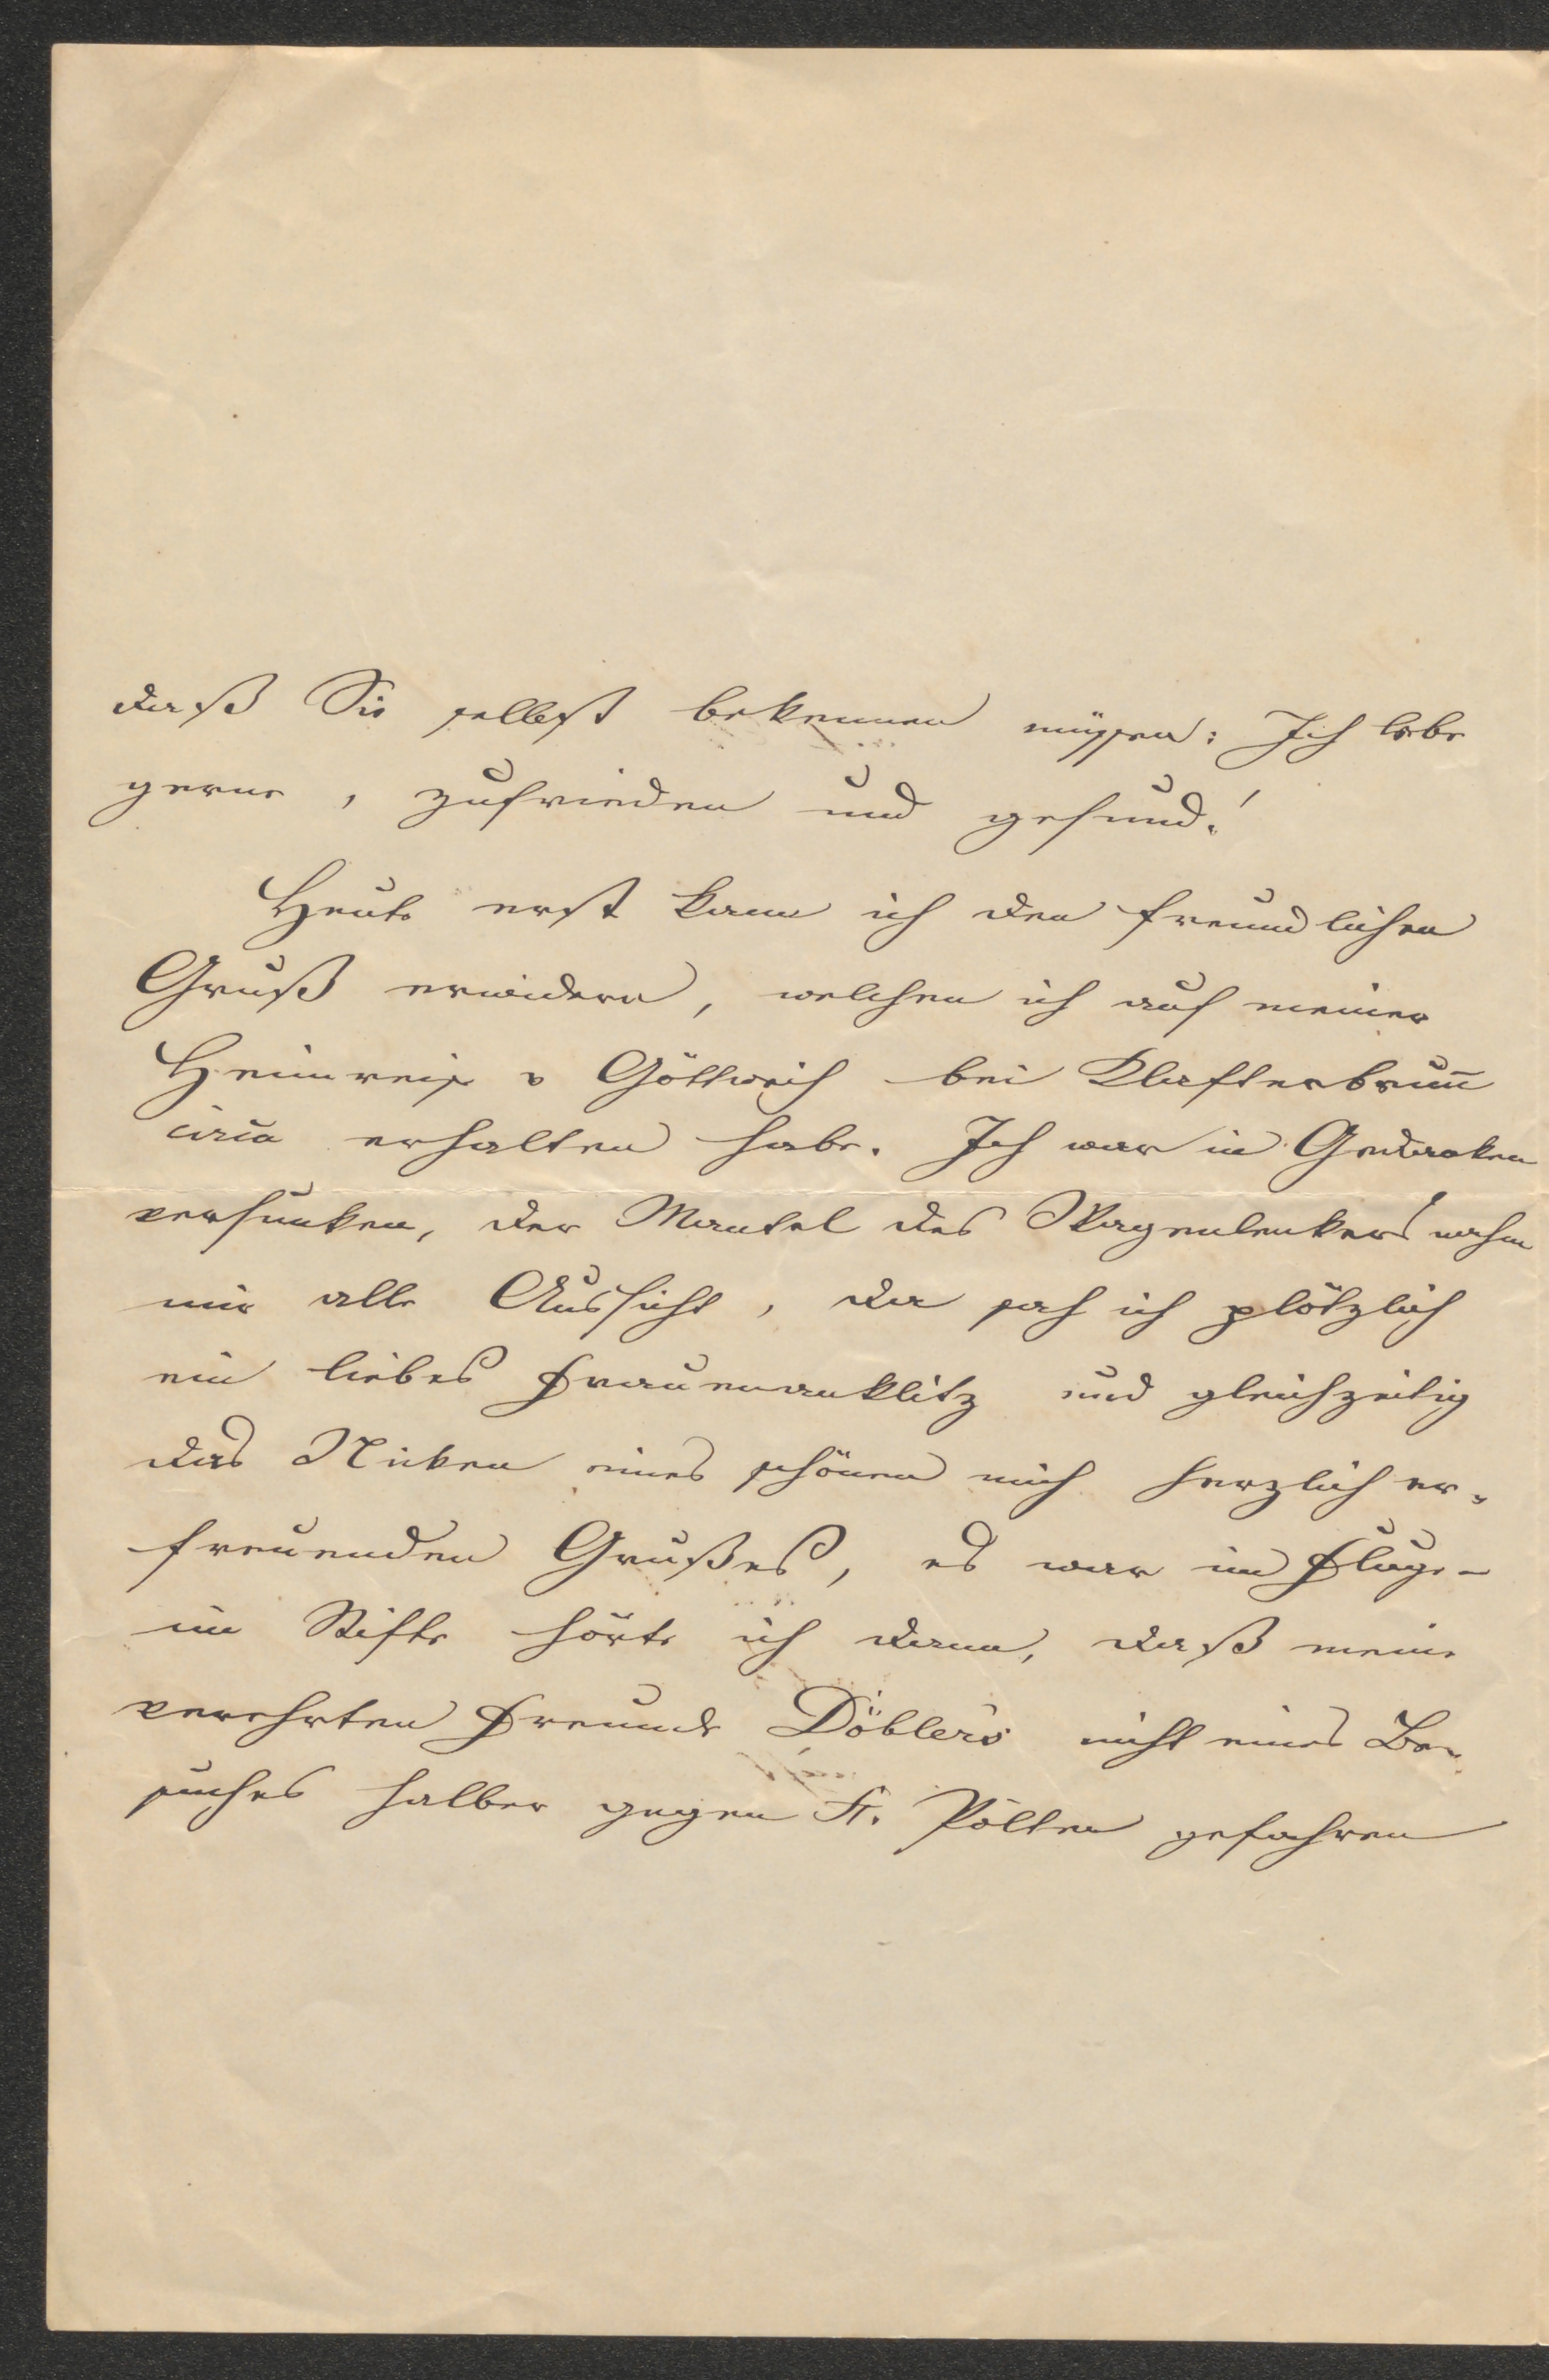 daß Sie selbst bekennen müssen: Ich lebe
gerne, zufrieden und gesund!
Heute erst kann ich den freundlichen
Gruß erwidern, welchen ich auf meiner
Heimreise v Göttweih bei Klafterbrun̅
circa erhalten habe. Ich war in Gedanken
versunken, der Mantel des Wagenlenkers nahm
mir alle Aussicht, da sah ich plötzlich
ein liebes Frauenantlitz und gleichzeitig
das Nicken eines schönen mich herzlich er-
freuenden Grußes, es war im Fluge -
im Stifte hörte ich dann, daß meine
verehrten Freunde Döbler's nicht eines Be-
suches halber gegen St. Pölten gefahren